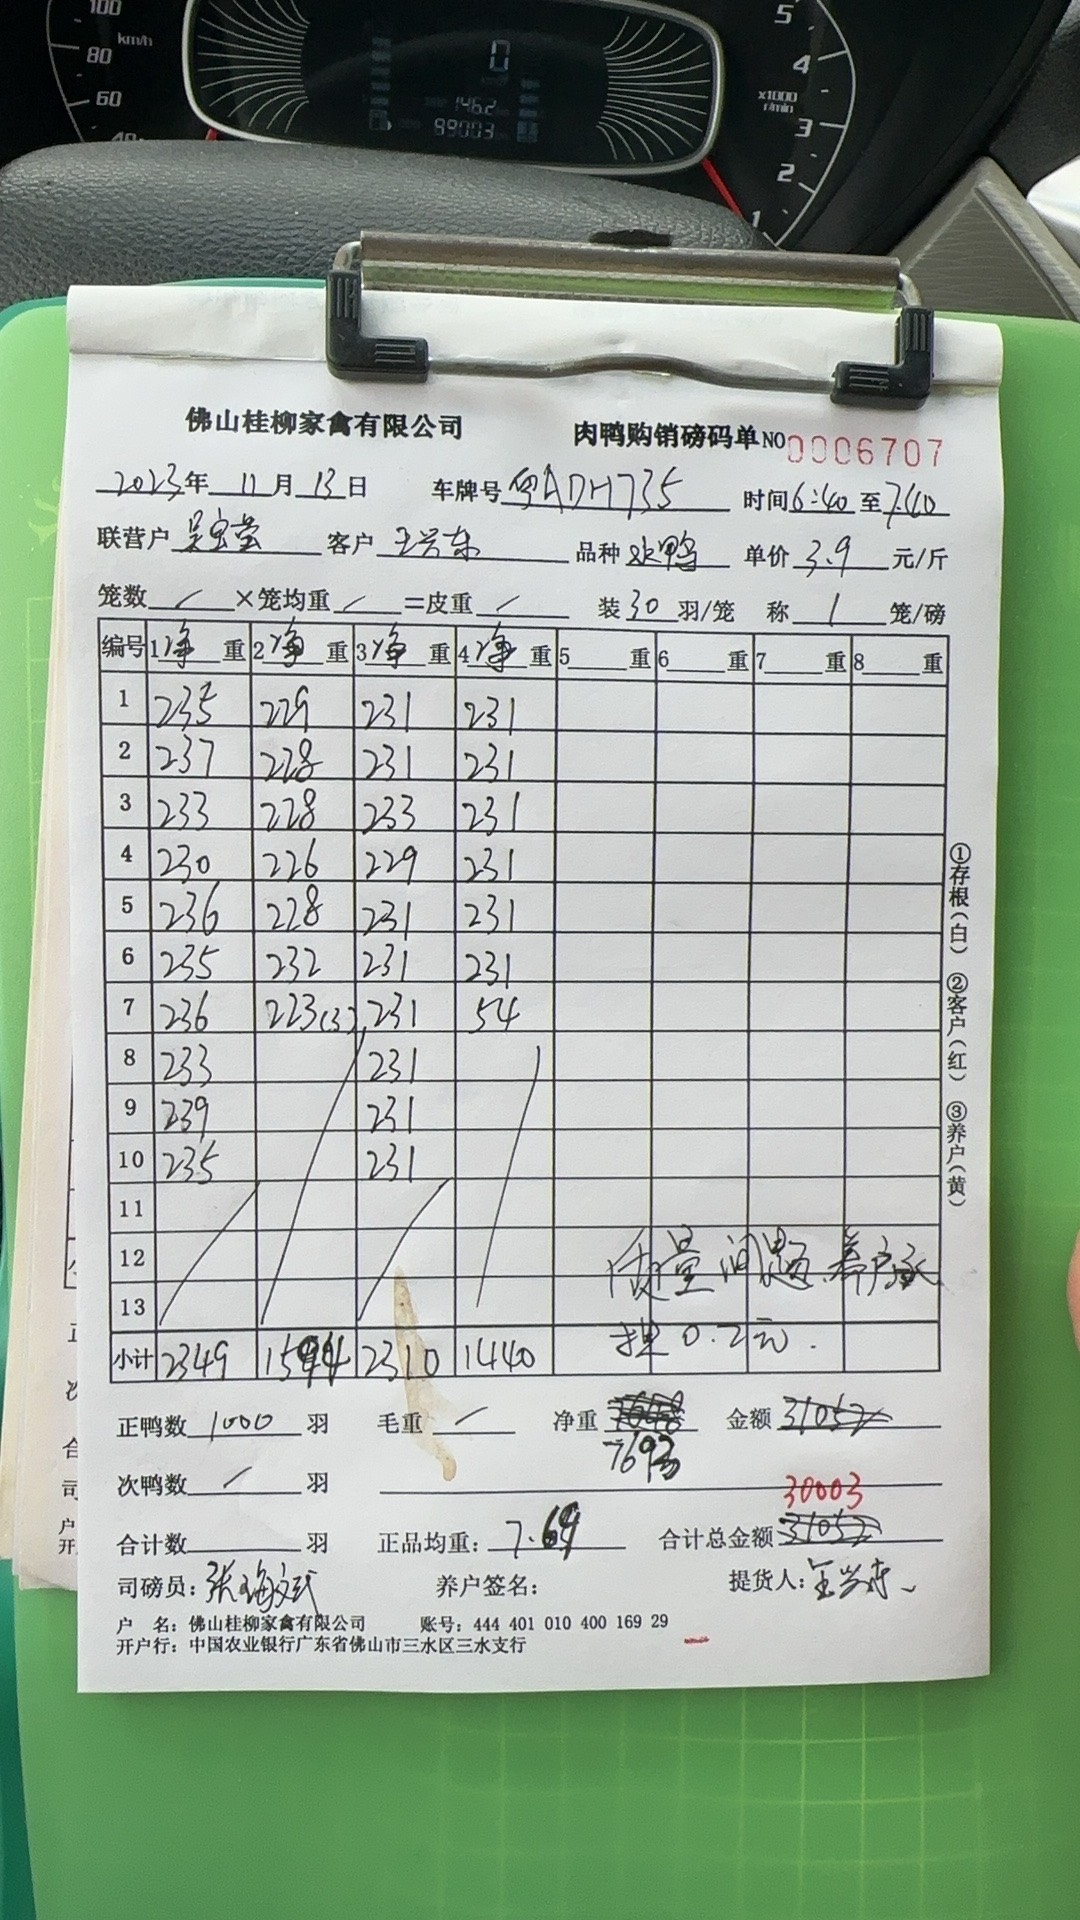 100
km/h
80
60
40
0
146.2
99003
5
4
x1000
r/min
3
2
1
佛山桂柳家禽有限公司 肉鸭购销磅码单 NO 0006707
2023年 11月 13日 车牌号 粤ADH735 时间6:40至7:40
联营户 吴宝莹 客户 王兴东 品种 水鸭 单价 3.9 元/斤
笼数 / ×笼均重 / =皮重 / 装 30 羽/笼 称 1 笼/磅
编号 1净重 2净重 3净重 4净重 5 重 6 重 7 重 8 重
1 235 229 231 231
2 237 228 231 231
3 233 228 233 231
4 230 226 229 231
5 236 228 231 231
6 235 232 231 231
7 236 223(3) 231 54
8 233 231
9 239 231
10 235 231
11
12
13
质量问题,养户承
担0.2元.
小计 2349 1594 2310 1440
正鸭数 1000 羽 毛重 / 净重 金额 31052
7693
次鸭数 / 羽
30003
合计数 羽 正品均重: 7.69 合计总金额 31052
司磅员: 养户签名: 提货人: 王兴东
户 名: 佛山桂柳家禽有限公司 账号: 444 401 010 400 169 29
开户行: 中国农业银行广东省佛山市三水区三水支行
①存根(白) ②客户(红) ③养户(黄)